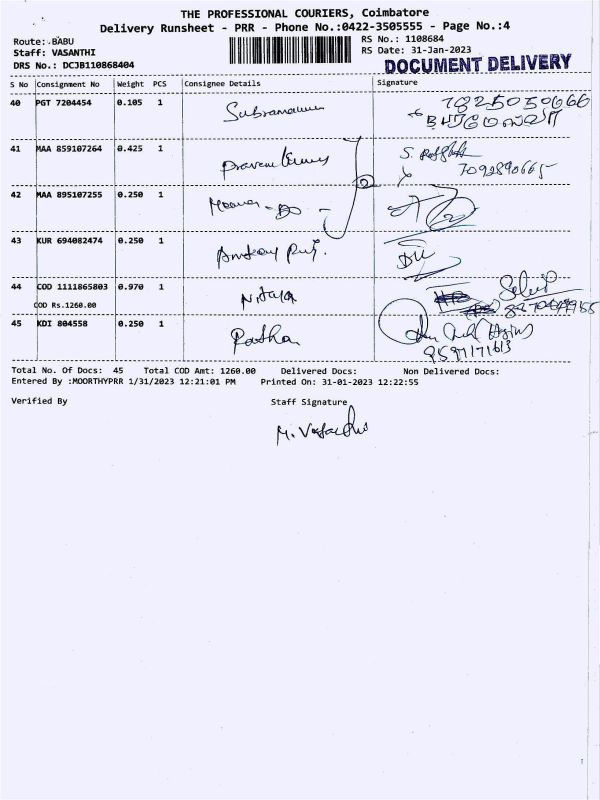 THE PROFESSIONAL COURIERS, Coimbatore
Delivery Runsheet - PRR - Phone No.:0422-3505555 - Page No.:4
Route: BABU
RS No.: 1108684
Staff: VASANTHI
RS Date: 31-Jan-2023
DRS No.: DCJB110868404
DOCUMENT DELIVERY
S No Consignment No Weight PCS Consignee Details Signature
40 PGT 7204454 0.105 1 7825050666
41 MAA 859107264 0.425 1 7092890665
42 MAA 895107255 0.250 1
43 KUR 694082474 0.250 1
44 COD 1111865803 0.970 1
COD Rs.1260.00
45 KDI 804558 0.250 1 Radha
Total No. Of Docs: 45 Total COD Amt: 1260.00 Delivered Docs: Non Delivered Docs:
Entered By :MOORTHYPRR 1/31/2023 12:21:01 PM Printed On: 31-01-2023 12:22:55
Verified By Staff Signature